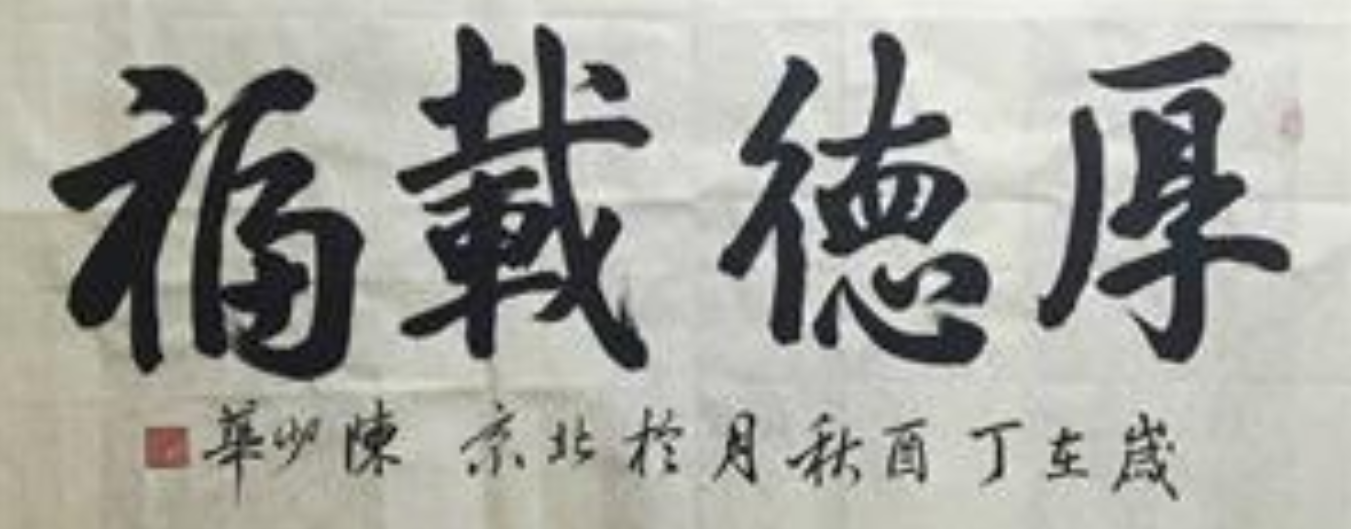 厚德載福
歲在丁酉秋月於北京 陳少華